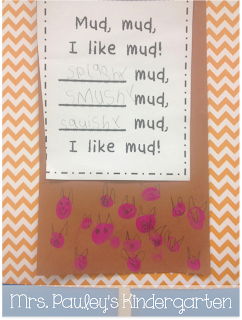 Mud, mud,
I like mud!
spishy mud,
smushy mud,
squishy mud,
I like mud!
Mrs. Pauley's Kindergarten